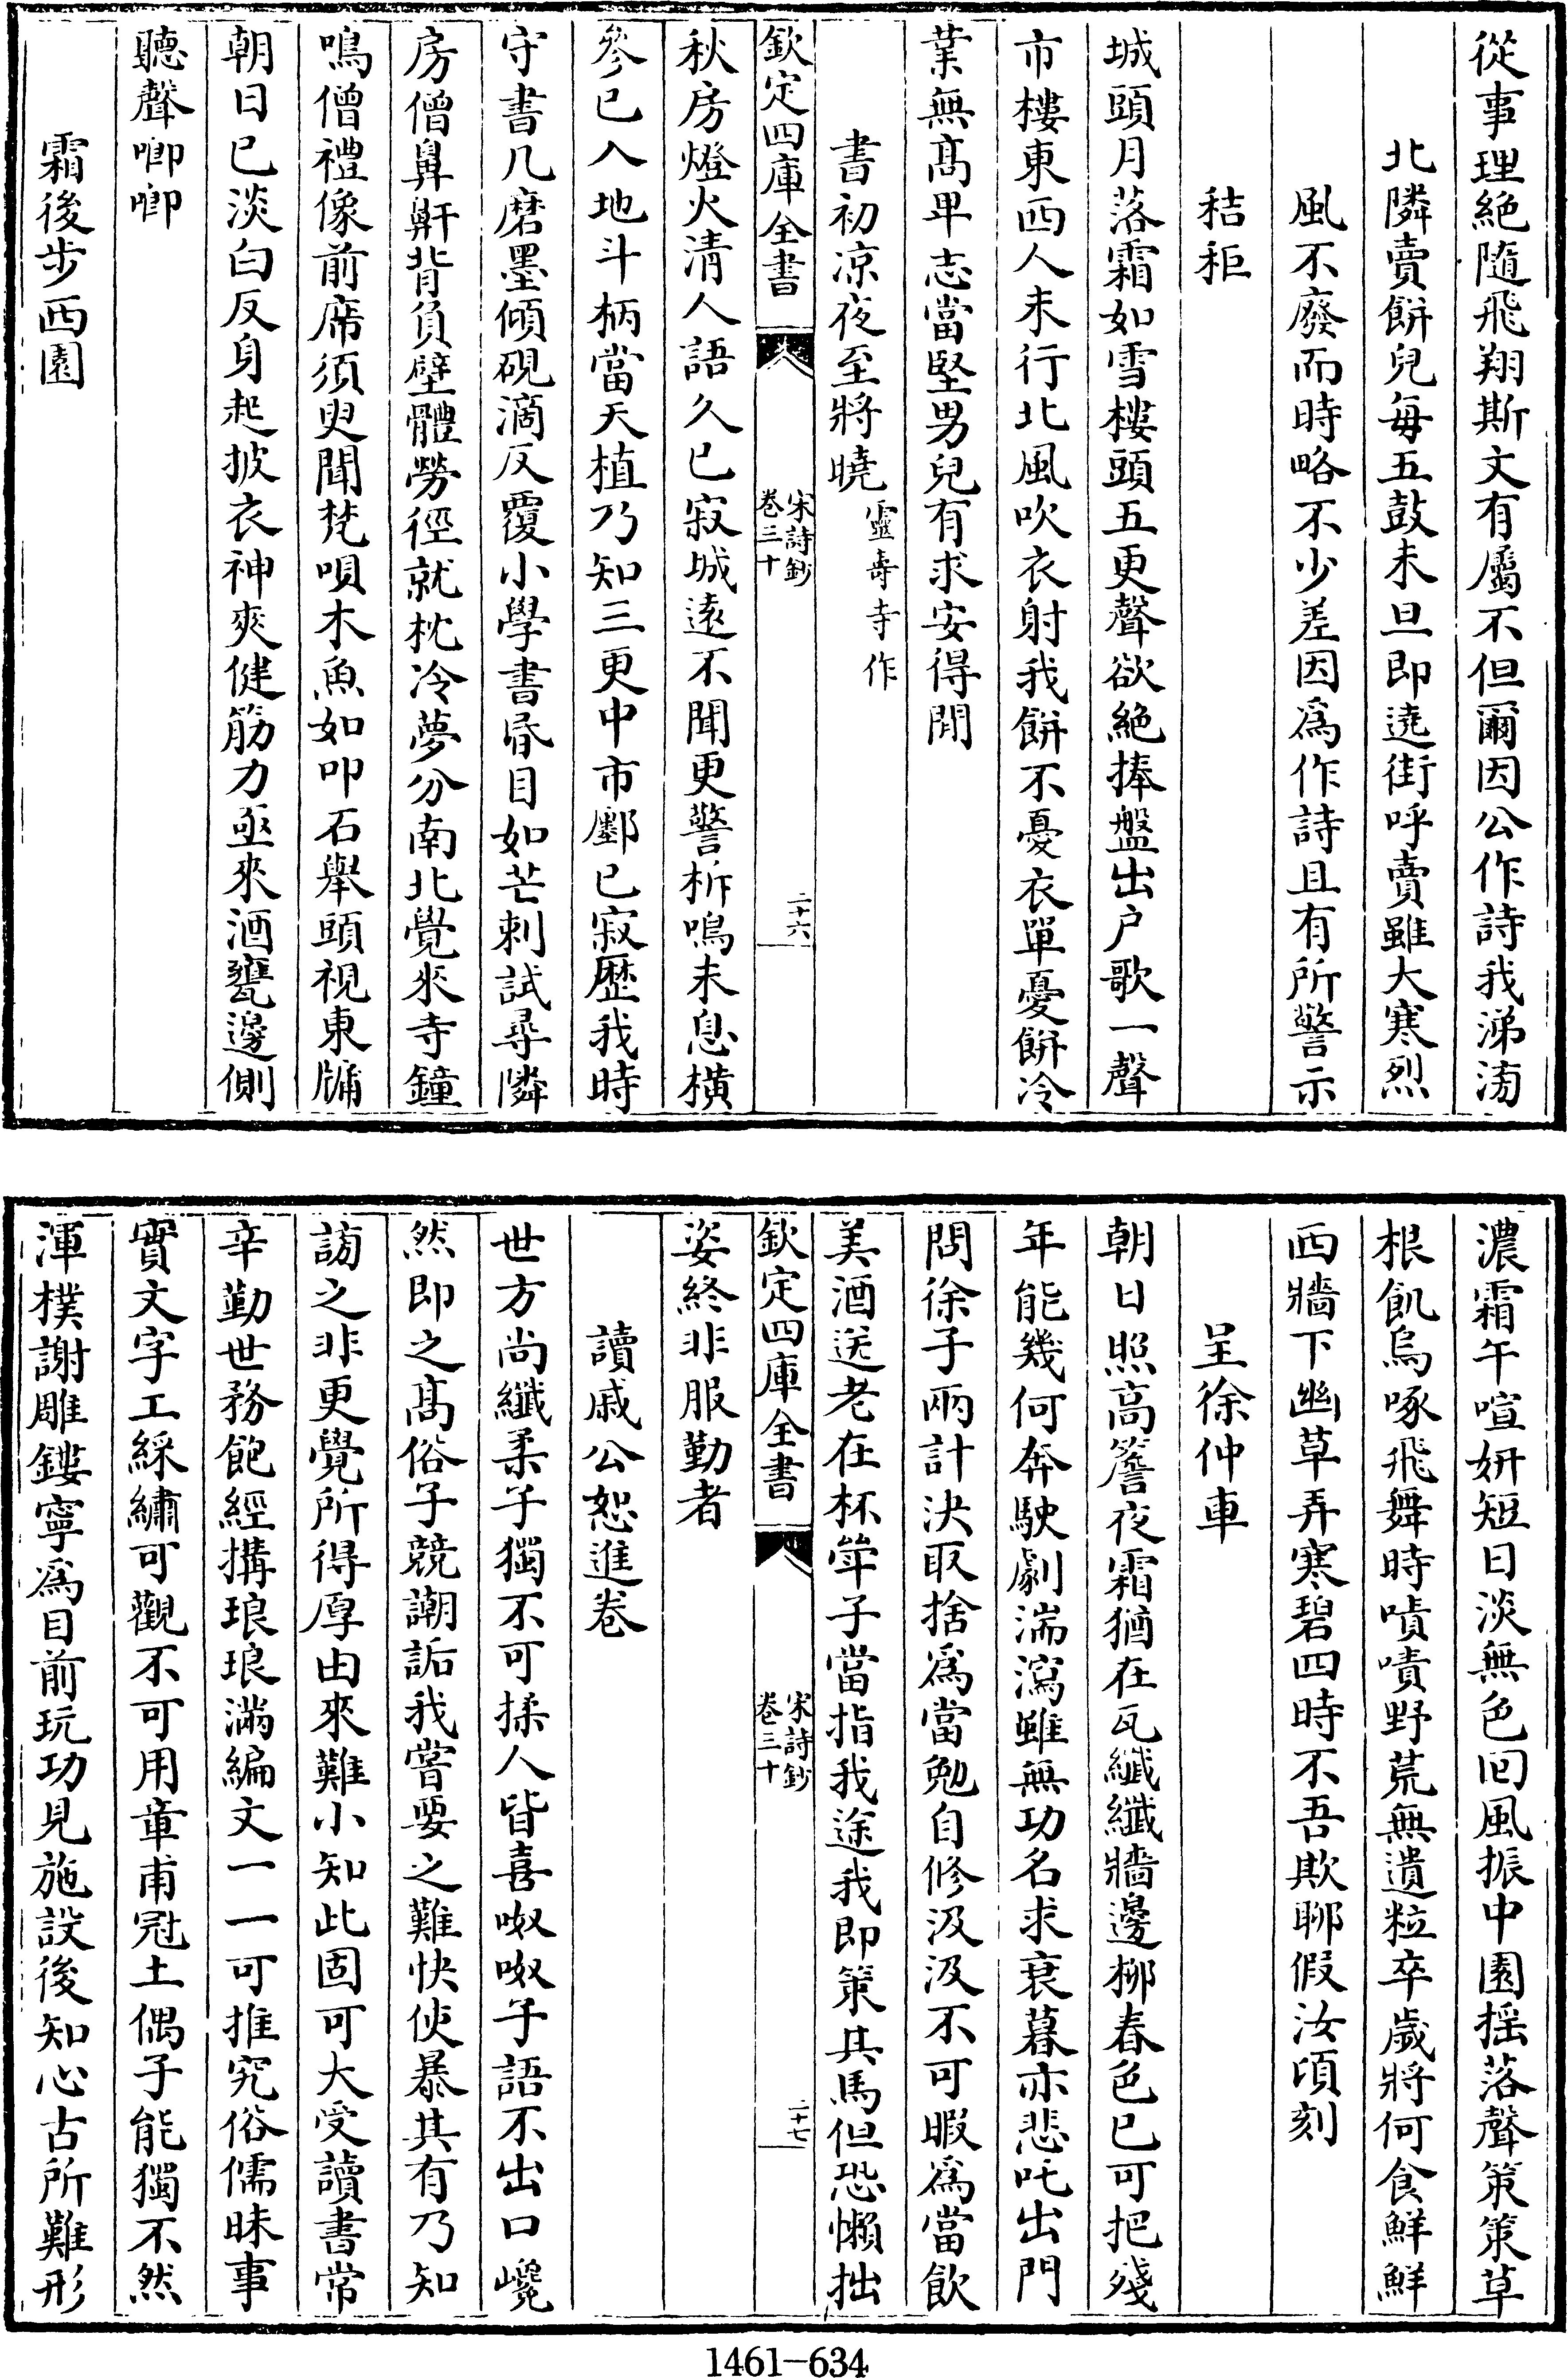 從事理絶隨飛翔斯文有屬不但爾因公作詩我涕滂
北隣賣餅兒每五鼓未旦即遶街呼賣雖大寒烈
風不廢而時略不少差因爲作詩且有所警示
秸秬
城頭月落霜如雪樓頭五更聲欲絶捧盤出户歌一聲
市樓東西人未行北風吹衣射我餅不憂衣單憂餅冷
業無髙卑志當堅男兒有求安得閒
書初凉夜至將曉靈壽寺作
欽定四庫全書
宋詩鈔
卷三十
二十六
秋房燈火清人語久已寂城遠不聞更警柝鳴未息橫
參已入地斗柄當天植乃知三更中市鄽已寂歴我時
守書几磨墨傾硯滴反覆小學書昏目如芒刺試尋隣
房僧鼻鼾背負壁體勞徑就枕冷夢分南北覺來寺鐘
鳴僧禮像前席須臾聞梵唄木魚如叩石舉頭視東牖
朝日已淡白反身起披衣神爽健筋力亟來酒甕邊側
聽聲喞喞
霜後步西園
濃霜午喧妍短日淡無色囘風振中園揺落聲策策草
根飢烏啄飛舞時嘖嘖野荒無遺粒卒歲將何食鮮鮮
西牆下幽草弄寒碧四時不吾欺聊假汝頃刻
呈徐仲車
朝日照高簷夜霜猶在瓦纎纎牆邊柳春色已可把殘
年能幾何奔駛劇湍瀉雖無功名求衰暮亦悲吒出門
問徐子兩計決取捨爲當勉自修汲汲不可暇爲當飲
美酒送老在杯斝子當指我途我即策其馬但恐懶拙
欽定四庫全書
宋詩鈔
卷三十
二十七
姿終非服勤者
讀戚公恕進卷
世方尚纎柔子獨不可揉人皆喜呶呶子語不出口巉
然即之髙俗子競譏詬我嘗要之難快使暴其有乃知
謗之非更覺所得厚由來難小知此固可大受讀書常
辛勤世務飽經搆琅琅滿編文一一可推究俗儒昧事
實文字工綵繡可觀不可用章甫冠土偶子能獨不然
渾樸謝雕鏤寧爲目前玩功見施設後知心古所難形
1461-634